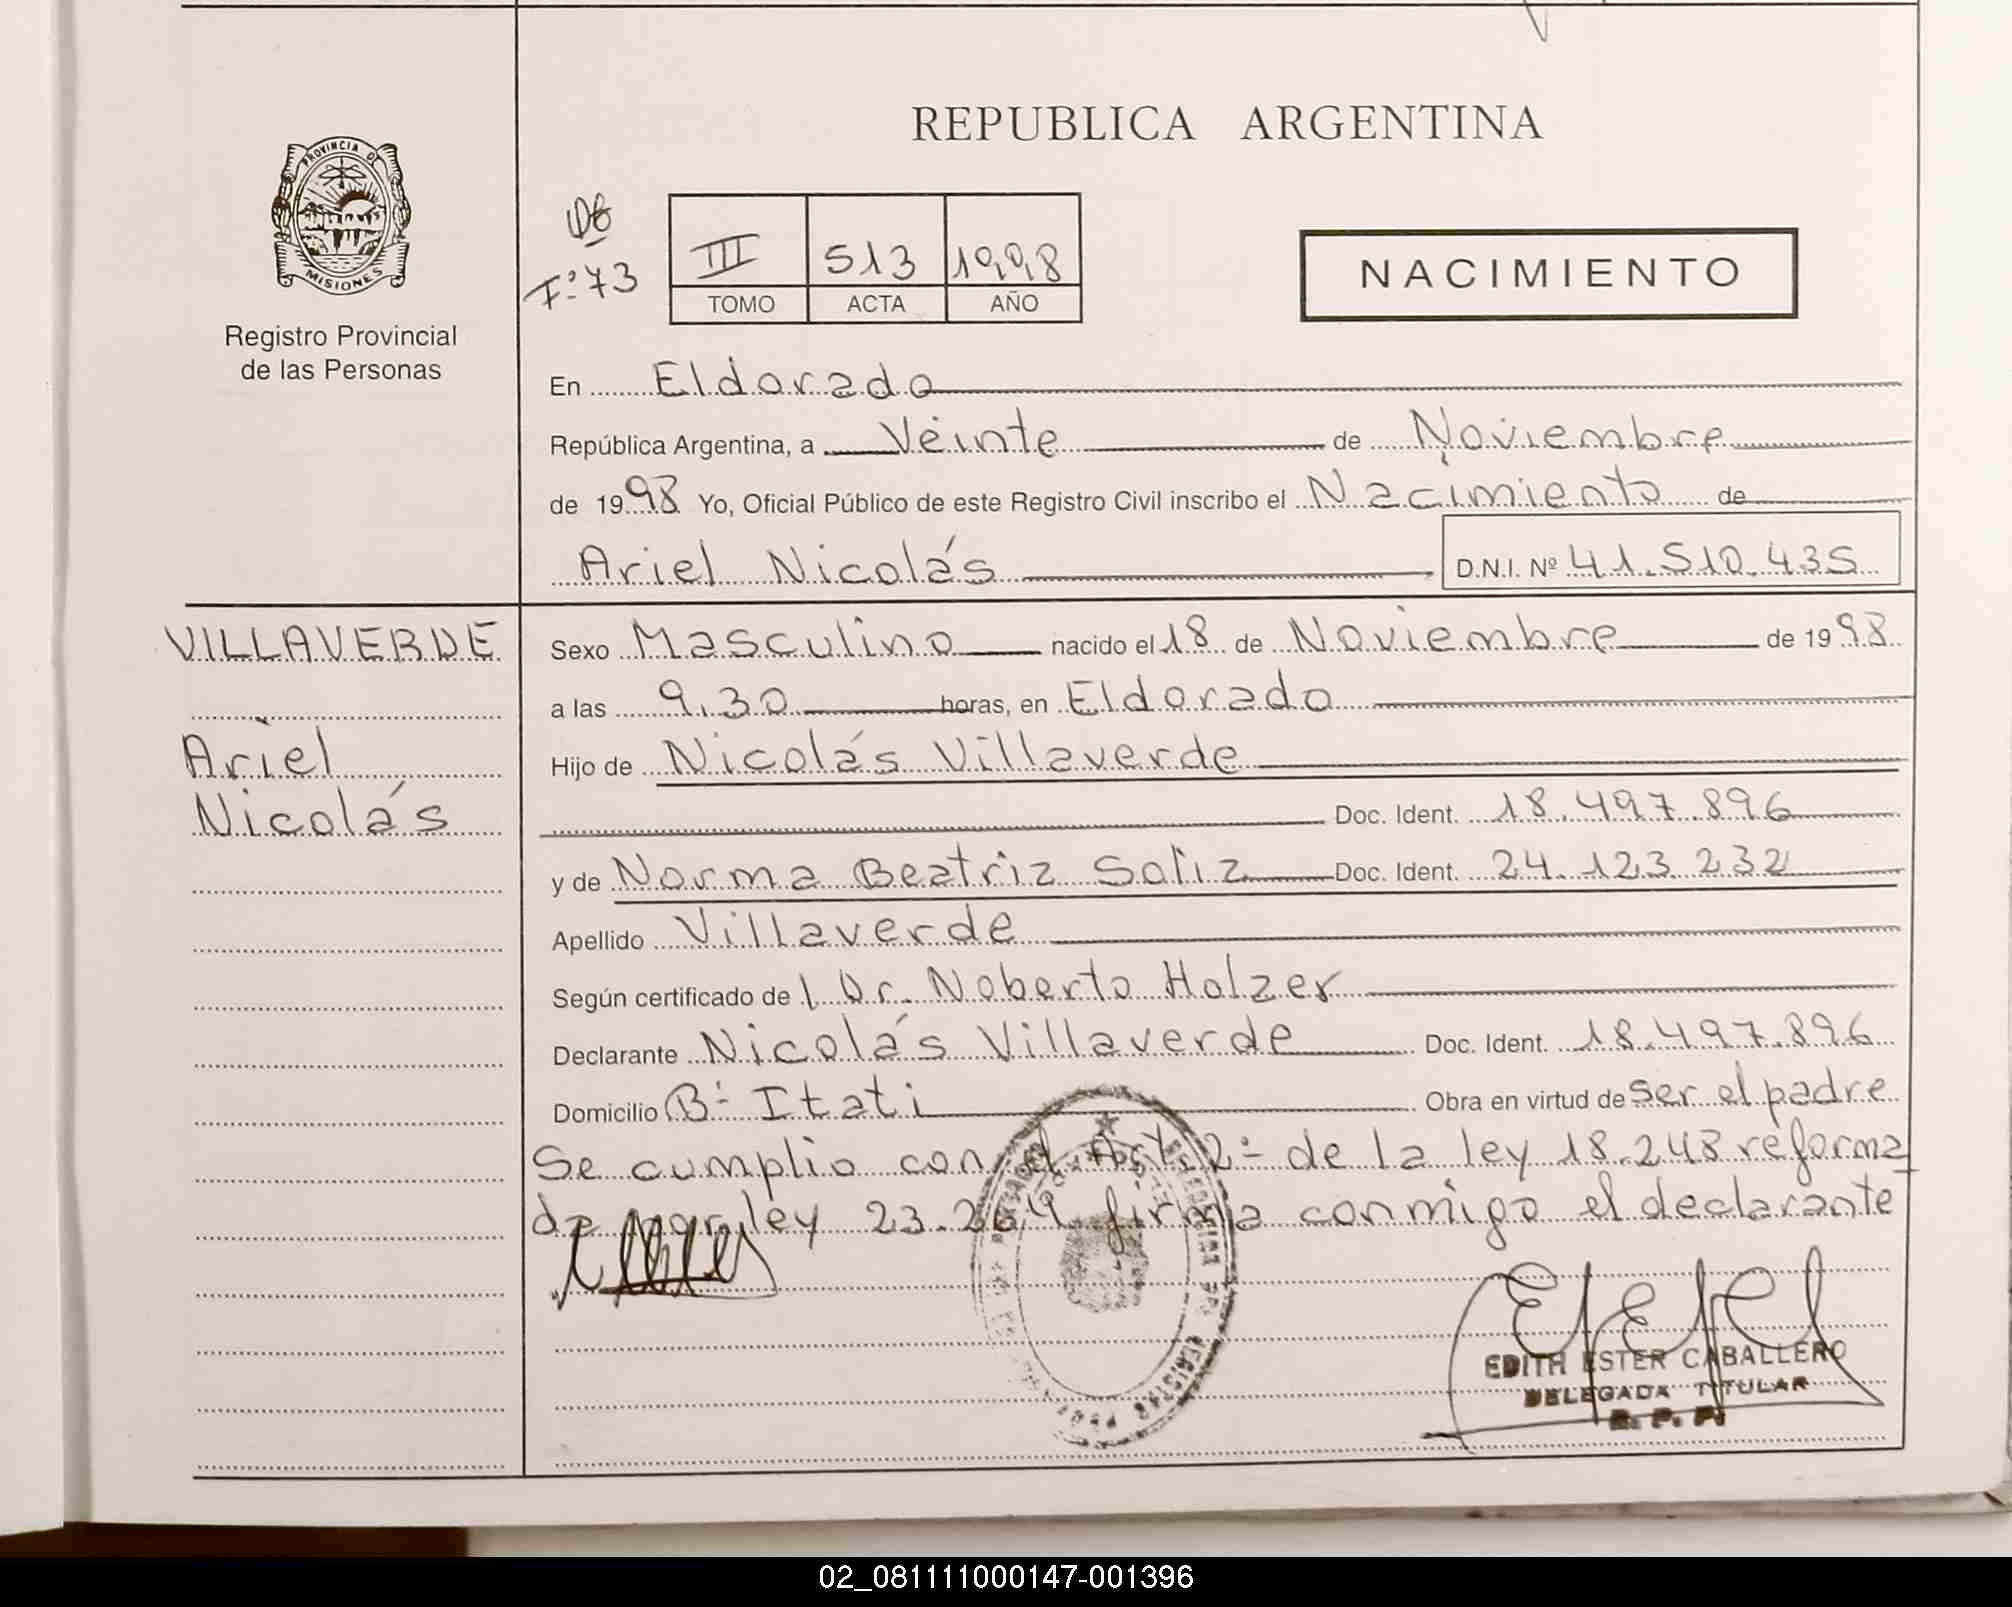 REPUBLICA ARGENTINA
PROVINCIA DE
MISIONES
Registro Provincial
de las Personas
Fº 73
III 513 1998
TOMO ACTA AÑO
NACIMIENTO
En Eldorado
República Argentina, a Veinte de Noviembre
de 1998 Yo, Oficial Público de este Registro Civil inscribo el Nacimiento de
Ariel Nicolás D.N.I. Nº 41.510.435
VILLAVERDE
Ariel
Nicolás
Sexo Masculino nacido el 18 de Noviembre de 1998
a las 9.30 horas, en Eldorado
Hijo de Nicolás Villaverde
Doc. Ident. 18.497.896
y de Norma Beatriz Soliz Doc. Ident. 24.123.232
Apellido Villaverde
Según certificado de l Dr. Noberto Holzer
Declarante Nicolás Villaverde Doc. Ident. 18.497.896
Domicilio Bº Itati Obra en virtud de ser el padre
Se cumplio con el Art. 2º de la ley 18.248 reforma
da por ley 23.264 firma conmigo el declarante
EDITH ESTER CABALLERO
DELEGADA TITULAR
R. P. P.
02_081111000147-001396